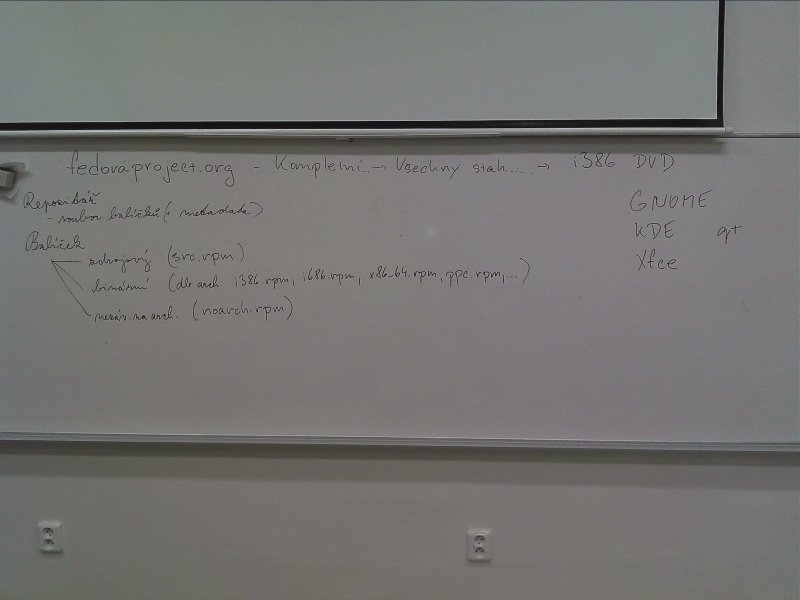 fedoraproject.org - Kompletní... → Všechny stah..... → i386 DVD
Repozitář
- soubor balíčků (+ metadata)
Balíček
zdrojový (src.rpm)
binární (dle arch. i386.rpm, i686.rpm, x86_64.rpm, ppc.rpm, ...)
nezáv. na arch. (noarch.rpm)
GNOME
KDE qt
Xfce